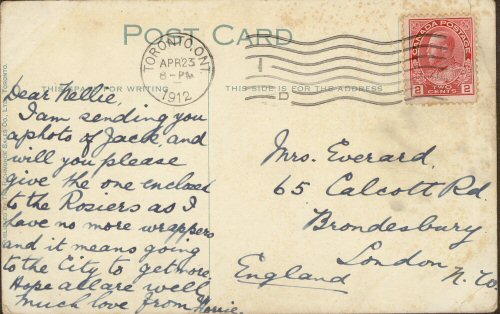 POST CARD
TORONTO, ONT.
APR 23
8 - PM
1912
CANADA POSTAGE
2 TWO CENTS 2
THIS SPACE FOR WRITING
THIS SIDE IS FOR THE ADDRESS
Dear Nellie,
I am sending you
a photo of Jack, and
will you please
give the one enclosed
to the Rosiers as I
have no more wrappers
and it means going
to the City to get more.
Hope all are well
Much love from
Mrs. Everard,
65 Calcott Rd.
Brondesbury
London
England N.